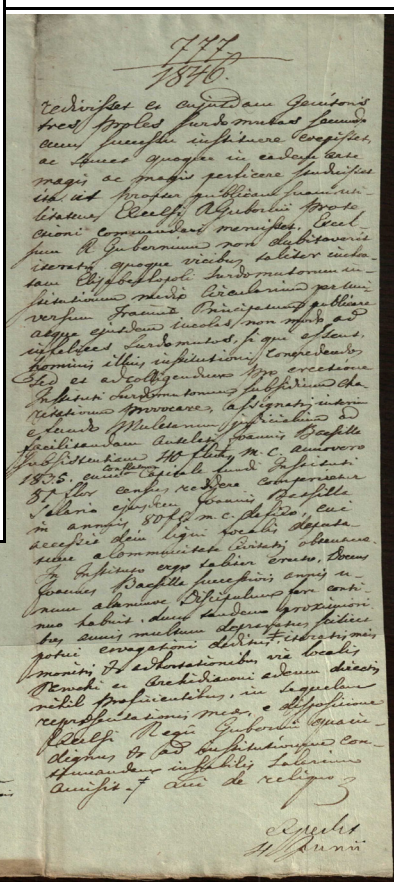 777
1846.
redivisset et cujusdam Genitoris
tres proles surdomutas secundo
cum successu instituere coepisset,
ac semet quoque in eadem arte
magis ac magis perficere studuisset
ita ut propter publicam suam uti-
litatem Excelsi R Gubernii prote-
ctioni commendari meruisset. Excel-
sum R Gubernium non dubitaverit
iteratis quoque vicibus taliter
tam Elisabethopoli Surdomutorum in-
stitutionem medio Circularium per uni
versum Principatum publicare
atque ejusdem incolas non modo ad
infelices Surdomutos, si qui essent,
hominis illius institutioni concredendos
sed et ad colligendum pro erectione
Instituti Surdomutorum subsidium cha-
ritativum provocare, assignatis interim
e fundo Mulctarum ad
facilitandam Antelati Joannis
subsistentiam 40 m. c. anno vero
1835. cum Capitale fundi Instituti
80 flor census reddere
Salario ejusdem Joannis
in annuis 80 f m. c. defixo, cui
accessio dein ligni focalis deputa-
tum a Communitate Civitatis obtentum.
In Instituto ergo taliter erecto, Docens
Joannes successivis annis u-
num alumnum Discipulum fors conti-
nuo habuit, dum tandem proximiori-
bus annis multum depravatus scilicet
potui evagationi deditus, iteratis meis
monitis & adhortationibus via localis
Parochi et Archidiaconi eidem directis
nihil proficientibus, in sequelam
representationis meae, e dispositione
Excelsi Regii Gubernii qua in-
dignus & ad institutionem con-
tinuandam inhabilis Salarium
amisit. Qui de reliquo
Junii